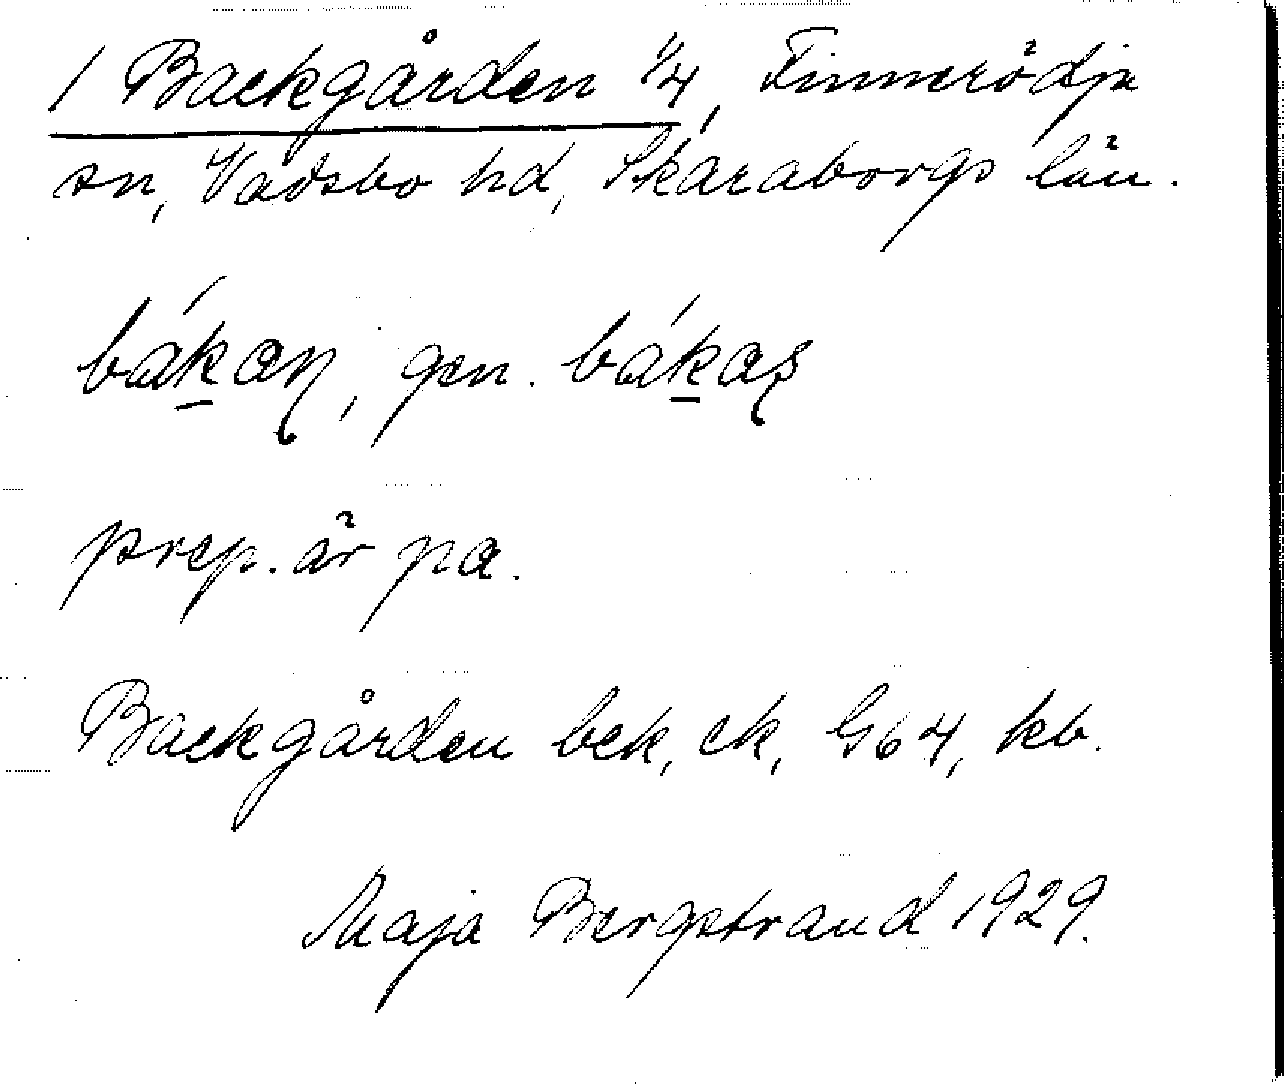 1 Backgården 1/4, Finnerödja
sn, Vadsbo hd, Skaraborgs län.
bákan, gen. bákas
prep. är pa.
Backgården bek, ek, G64, kb.
Maja Bergstrand 1929.